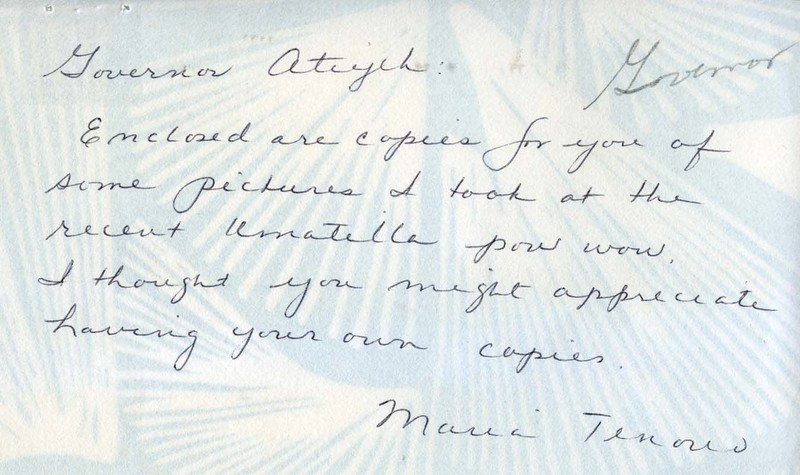 Governor Atiyeh:
Governor
Enclosed are copies for you of
some pictures I took at the
recent Umatella pow wow.
I thought you might appreciate
having your own copies.
Maria Tenorio